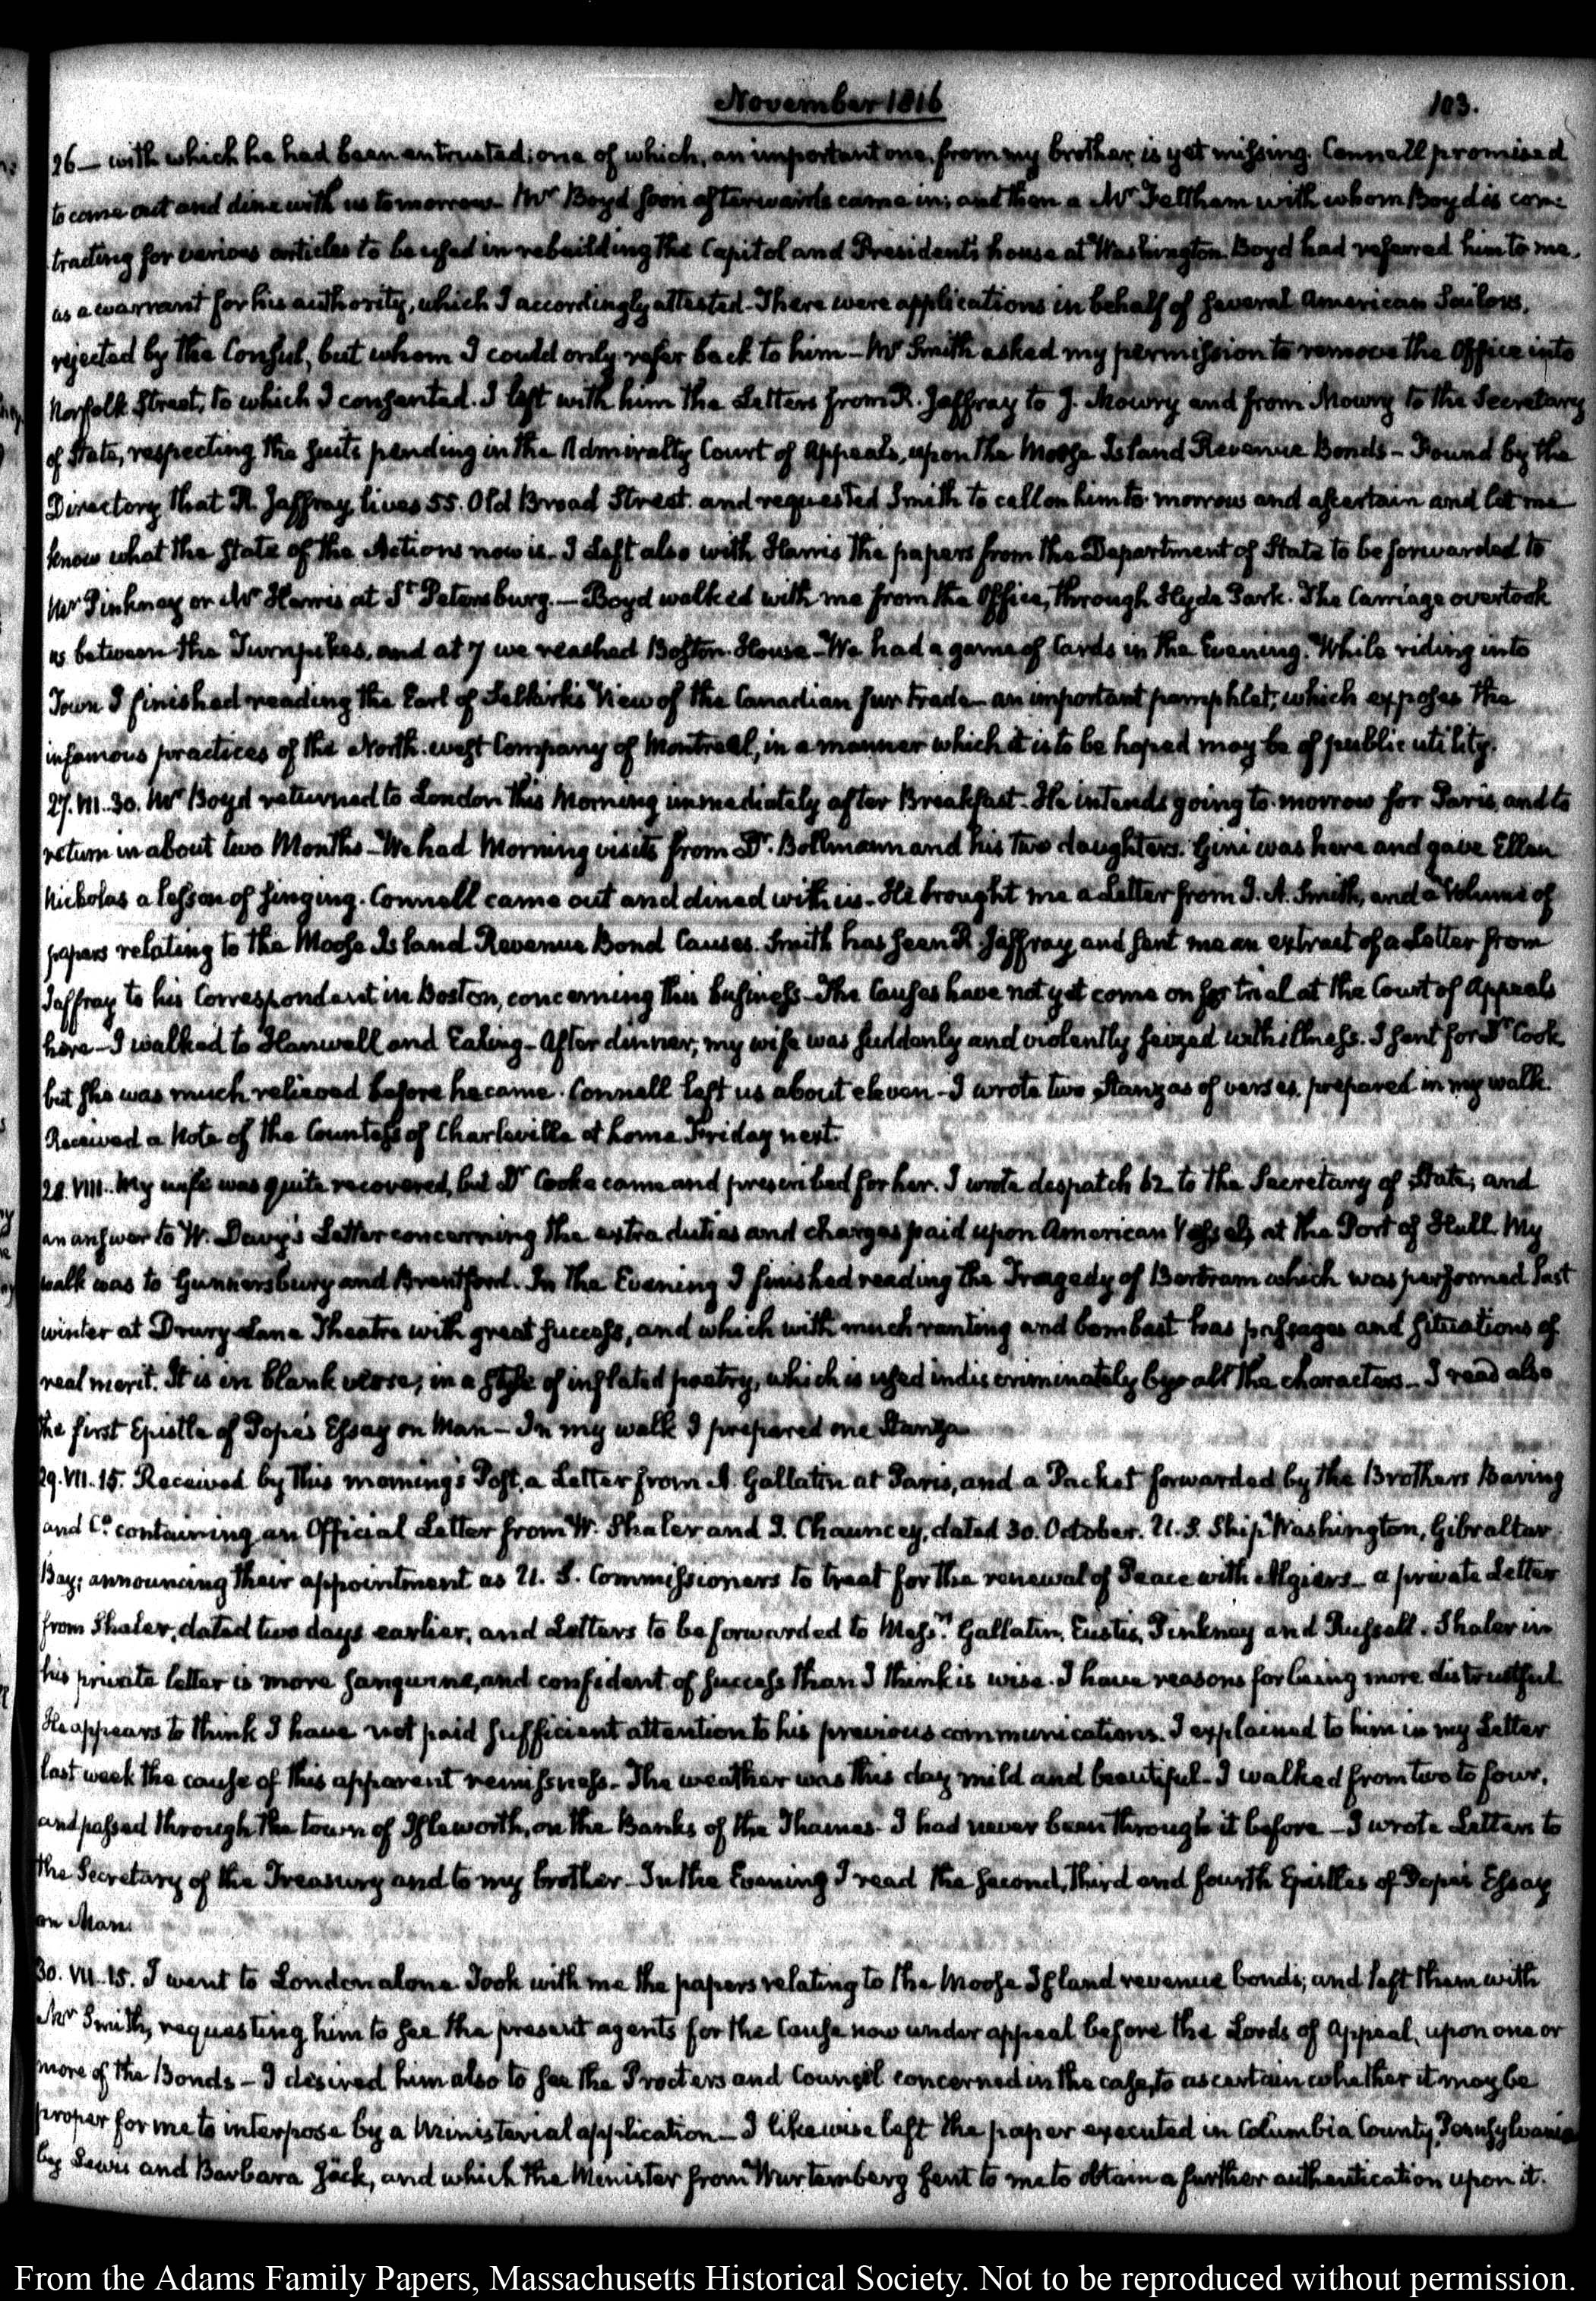 November 1816
103.
26— with which he had been entrusted; one of which, an important one, from my brother, is yet missing. Connell promised
to come out and dine with us tomorrow— Mr Boyd soon afterwards came in; and then a Mr Feltham with whom Boyd is con-
tracting for various articles to be used in rebuilding the Capitol and President's house at Washington. Boyd had referred him to me,
as a warrant for his authority, which I accordingly attested— There were applications in behalf of several American Sailors,
rejected by the Consul, but whom I could only refer back to him— Mr Smith asked my permission to remove the Office into
Norfolk Street, to which I consented. I left with him the Letters from R. Jaffray to J. Mowry and from Mowry to the Secretary
of State, respecting the suits pending in the Admiralty Court of Appeals, upon the Moose Island Revenue Bonds— Found by the
Directory that R. Jaffray lives 55. Old Broad Street. and requested Smith to call on him to-morrow and ascertain and let me
know what the state of the Actions now is— I left also with Harris the papers from the Department of State to be forwarded to
Mr Pinkney or Mr Harris at St Petersburg.— Boyd walked with me from the Office, through Hyde Park. The Carriage overtook
us between the Turnpikes, and at 7 we reached Boston-House— We had a game of Cards in the Evening. While riding into
Town I finished reading the Earl of Selkirk's View of the Canadian fur trade— an important pamphlet; which exposes the
infamous practices of the North-west Company of Montreal, in a manner which it is to be hoped may be of public utility.
27. VII..30. Mr Boyd returned to London this Morning immediately after Breakfast— He intends going to-morrow for Paris, and to
return in about two Months— We had Morning visits from Dr. Bollmann and his two daughters. Gini was here and gave Ellen
Nicholas a lesson of singing. Connell came out and dined with us— He brought me a Letter from J. A. Smith, and a Volume of
papers relating to the Moose Island Revenue Bond Causes. Smith has seen R. Jaffray, and sent me an extract of a Letter from
Jaffray to his Correspondent in Boston, concerning this business— The Causes have not yet come on for trial at the Court of Appeals
here— I walked to Hanwell and Ealing— After dinner, my wife was suddenly and violently seized with illness. I sent for Dr Cook,
but she was much relieved before he came. Connell left us about eleven— I wrote two Stanzas of verses, prepared in my walk.
Received a Note of the Countess of Charleville at home Friday next.
28. VIII.. My wife was quite recovered, but Dr Cooke came and prescribed for her. I wrote despatch 62 to the Secretary of State; and
an answer to W. Davy's Letter concerning the extra duties and charges paid upon American Vessels at the Port of Hull. My
walk was to Gunnersbury and Brentford. In the Evening I finished reading the Tragedy of Bertram which was performed last
winter at Drury-Lane Theatre with great success, and which with much ranting and bombast has passages and situations of
real merit. It is in blank verse; in a style of inflated poetry, which is used indiscriminately by all the characters— I read also
the first Epistle of Pope's Essay on Man— In my walk I prepared one Stanza
29. VII..15. Received by this morning's Post, a Letter from A. Gallatin at Paris, and a Packet forwarded by the Brothers Baring
and Co. containing an Official Letter from W. Shaler and I. Chauncey, dated 30. October. U. S. Ship Washington, Gibraltar
Bay; announcing their appointment as U. S. Commissioners to treat for the renewal of Peace with Algiers— a private Letter
from Shaler, dated two days earlier, and Letters to be forwarded to Messrs. Gallatin, Eustis, Pinkney and Russell. Shaler in
his private letter is more sanguine, and confident of success than I think is wise. I have reasons for being more distrustful
He appears to think I have not paid sufficient attention to his previous communications. I explained to him in my Letter
last week the cause of this apparent remissness— The weather was this day mild and beautiful— I walked from two to four,
and passed through the town of Isleworth, on the Banks of the Thames— I had never been through it before— I wrote Letters to
the Secretary of the Treasury and to my brother— In the Evening I read the second, third and fourth Epistles of Pope's Essay
on Man.
30. VII..15. I went to London alone. Took with me the papers relating to the Moose Island revenue bonds; and left them with
Mr Smith, requesting him to see the present agents for the Cause now under appeal before the Lords of Appeal, upon one or
more of the Bonds— I desired him also to see the Procters and Council concerned in the case, to ascertain whether it may be
proper for me to interpose by a Ministerial application— I likewise left the paper executed in Columbia County, Pennsylvania
by Lewis and Barbara Jäck, and which the Minister from Wurtemberg sent to me to obtain a further authentication upon it.
From the Adams Family Papers, Massachusetts Historical Society. Not to be reproduced without permission.